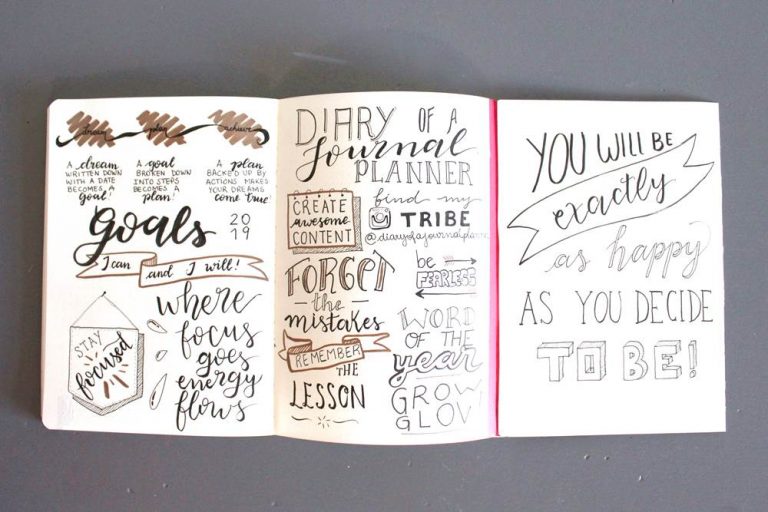 dream plan achieve
A dream
WRITTEN DOWN
WITH A DATE
BECOMES A
goal!
A goal
BROKEN DOWN
INTO STEPS
BECOMES A
plan!
A plan
BACKED UP BY
ACTIONS MAKES
YOUR DREAMS
come true
Goals
20
19
I can and I will!
STAY
focused
where
focus
goes
energy
flows
DIARY OF A
Journal
PLANNER
CREATE
awesome
CONTENT
find my
TRIBE
@diaryofajournalplanner
FORGET
the
mistakes
REMEMBER
THE
LESSON
be
FEARLESS
WORD
OF THE
year
GROW
GLOW
YOU WILL BE
exactly
as happy
AS YOU DECIDE
TO BE!